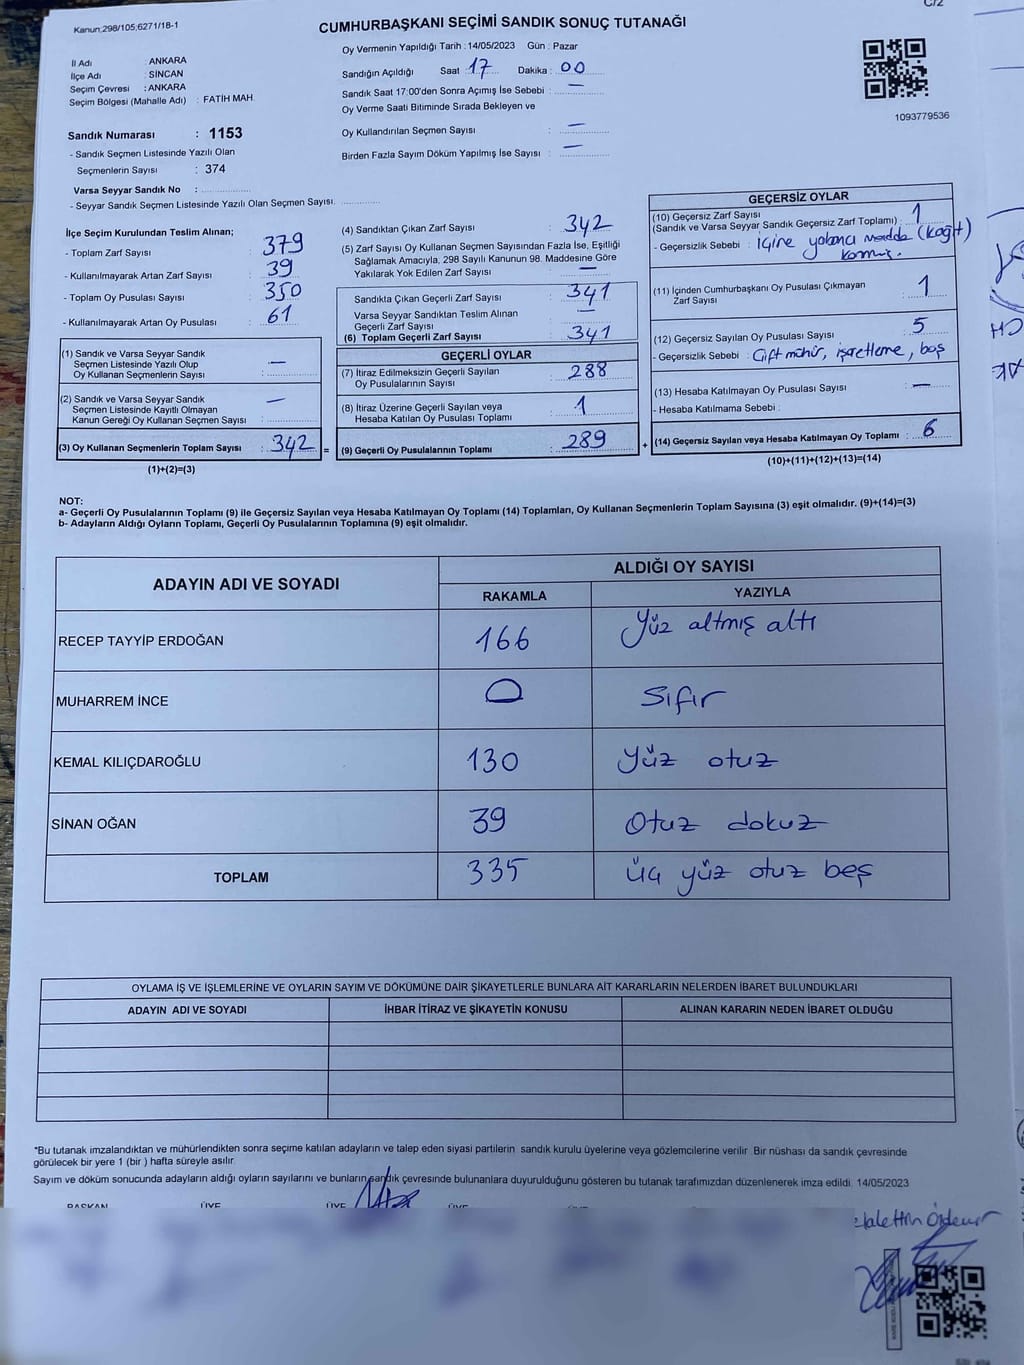 C/2
Kanun;298/105;6271/18-1
CUMHURBAŞKANI SEÇİMİ SANDIK SONUÇ TUTANAĞI
Oy Vermenin Yapıldığı Tarih : 14/05/2023 Gün : Pazar
İl Adı : ANKARA
İlçe Adı : SİNCAN
Seçim Çevresi : ANKARA
Seçim Bölgesi (Mahalle Adı) : FATİH MAH.
Sandığın Açıldığı Saat 17 Dakika : 00
Sandık Saat 17:00'den Sonra Açımış İse Sebebi : —
Oy Verme Saati Bitiminde Sırada Bekleyen ve
Oy Kullandırılan Seçmen Sayısı : —
Birden Fazla Sayım Döküm Yapılmış İse Sayısı : —
1093779536
Sandık Numarası : 1153
- Sandık Seçmen Listesinde Yazılı Olan
Seçmenlerin Sayısı : 374
Varsa Seyyar Sandık No :
- Seyyar Sandık Seçmen Listesinde Yazılı Olan Seçmen Sayısı.
İlçe Seçim Kurulundan Teslim Alınan;
- Toplam Zarf Sayısı : 379
- Kullanılmayarak Artan Zarf Sayısı : 39
- Toplam Oy Pusulası Sayısı : 350
- Kullanılmayarak Artan Oy Pusulası : 61
(1) Sandık ve Varsa Seyyar Sandık
Seçmen Listesinde Yazılı Olup
Oy Kullanan Seçmenlerin Sayısı : —
(2) Sandık ve Varsa Seyyar Sandık
Seçmen Listesinde Kayıtlı Olmayan
Kanun Gereği Oy Kullanan Seçmen Sayısı : —
(3) Oy Kullanan Seçmenlerin Toplam Sayısı : 342 =
(1)+(2)=(3)
(4) Sandıktan Çıkan Zarf Sayısı : 342
(5) Zarf Sayısı Oy Kullanan Seçmen Sayısından Fazla İse, Eşitliği
Sağlamak Amacıyla, 298 Sayılı Kanunun 98. Maddesine Göre
Yakılarak Yok Edilen Zarf Sayısı : —
Sandıkta Çıkan Geçerli Zarf Sayısı : 341
Varsa Seyyar Sandıktan Teslim Alınan
Geçerli Zarf Sayısı : —
(6) Toplam Geçerli Zarf Sayısı : 341
GEÇERLİ OYLAR
(7) İtiraz Edilmeksizin Geçerli Sayılan
Oy Pusulalarının Sayısı : 288
(8) İtiraz Üzerine Geçerli Sayılan veya
Hesaba Katılan Oy Pusulası Toplamı : 1
(9) Geçerli Oy Pusulalarının Toplamı : 289 +
GEÇERSİZ OYLAR
(10) Geçersiz Zarf Sayısı
(Sandık ve Varsa Seyyar Sandık Geçersiz Zarf Toplamı) : 1
- Geçersizlik Sebebi : İçine yabancı madde (kağıt)
konmuş.
(11) İçinden Cumhurbaşkanı Oy Pusulası Çıkmayan
Zarf Sayısı : 1
(12) Geçersiz Sayılan Oy Pusulası Sayısı : 5
- Geçersizlik Sebebi : Çift mühür, işaretleme, boş
(13) Hesaba Katılmayan Oy Pusulası Sayısı : —
- Hesaba Katılmama Sebebi :
(14) Geçersiz Sayılan veya Hesaba Katılmayan Oy Toplamı : 6
(10)+(11)+(12)+(13)=(14)
NOT:
a- Geçerli Oy Pusulalarının Toplamı (9) ile Geçersiz Sayılan veya Hesaba Katılmayan Oy Toplamı (14) Toplamları, Oy Kullanan Seçmenlerin Toplam Sayısına (3) eşit olmalıdır. (9)+(14)=(3)
b- Adayların Aldığı Oyların Toplamı, Geçerli Oy Pusulalarının Toplamına (9) eşit olmalıdır.
ADAYIN ADI VE SOYADI ALDIĞI OY SAYISI
RAKAMLA YAZIYLA
RECEP TAYYİP ERDOĞAN 166 Yüz altmış altı
MUHARREM İNCE 0 Sıfır
KEMAL KILIÇDAROĞLU 130 Yüz otuz
SİNAN OĞAN 39 Otuz dokuz
TOPLAM 335 üç yüz otuz beş
OYLAMA İŞ VE İŞLEMLERİNE VE OYLARIN SAYIM VE DÖKÜMÜNE DAİR ŞİKAYETLERLE BUNLARA AİT KARARLARIN NELERDEN İBARET BULUNDUKLARI
ADAYIN ADI VE SOYADI İHBAR İTİRAZ VE ŞİKAYETİN KONUSU ALINAN KARARIN NEDEN İBARET OLDUĞU
*Bu tutanak imzalandıktan ve mühürlendikten sonra seçime katılan adayların ve talep eden siyasi partilerin sandık kurulu üyelerine veya gözlemcilerine verilir. Bir nüshası da sandık çevresinde
görülecek bir yere 1 (bir ) hafta süreyle asılır.
Sayım ve döküm sonucunda adayların aldığı oyların sayılarını ve bunların sandık çevresinde bulunanlara duyurulduğunu gösteren bu tutanak tarafımızdan düzenlenerek imza edildi. 14/05/2023
BAŞKAN ÜYE ÜYE ÜYE